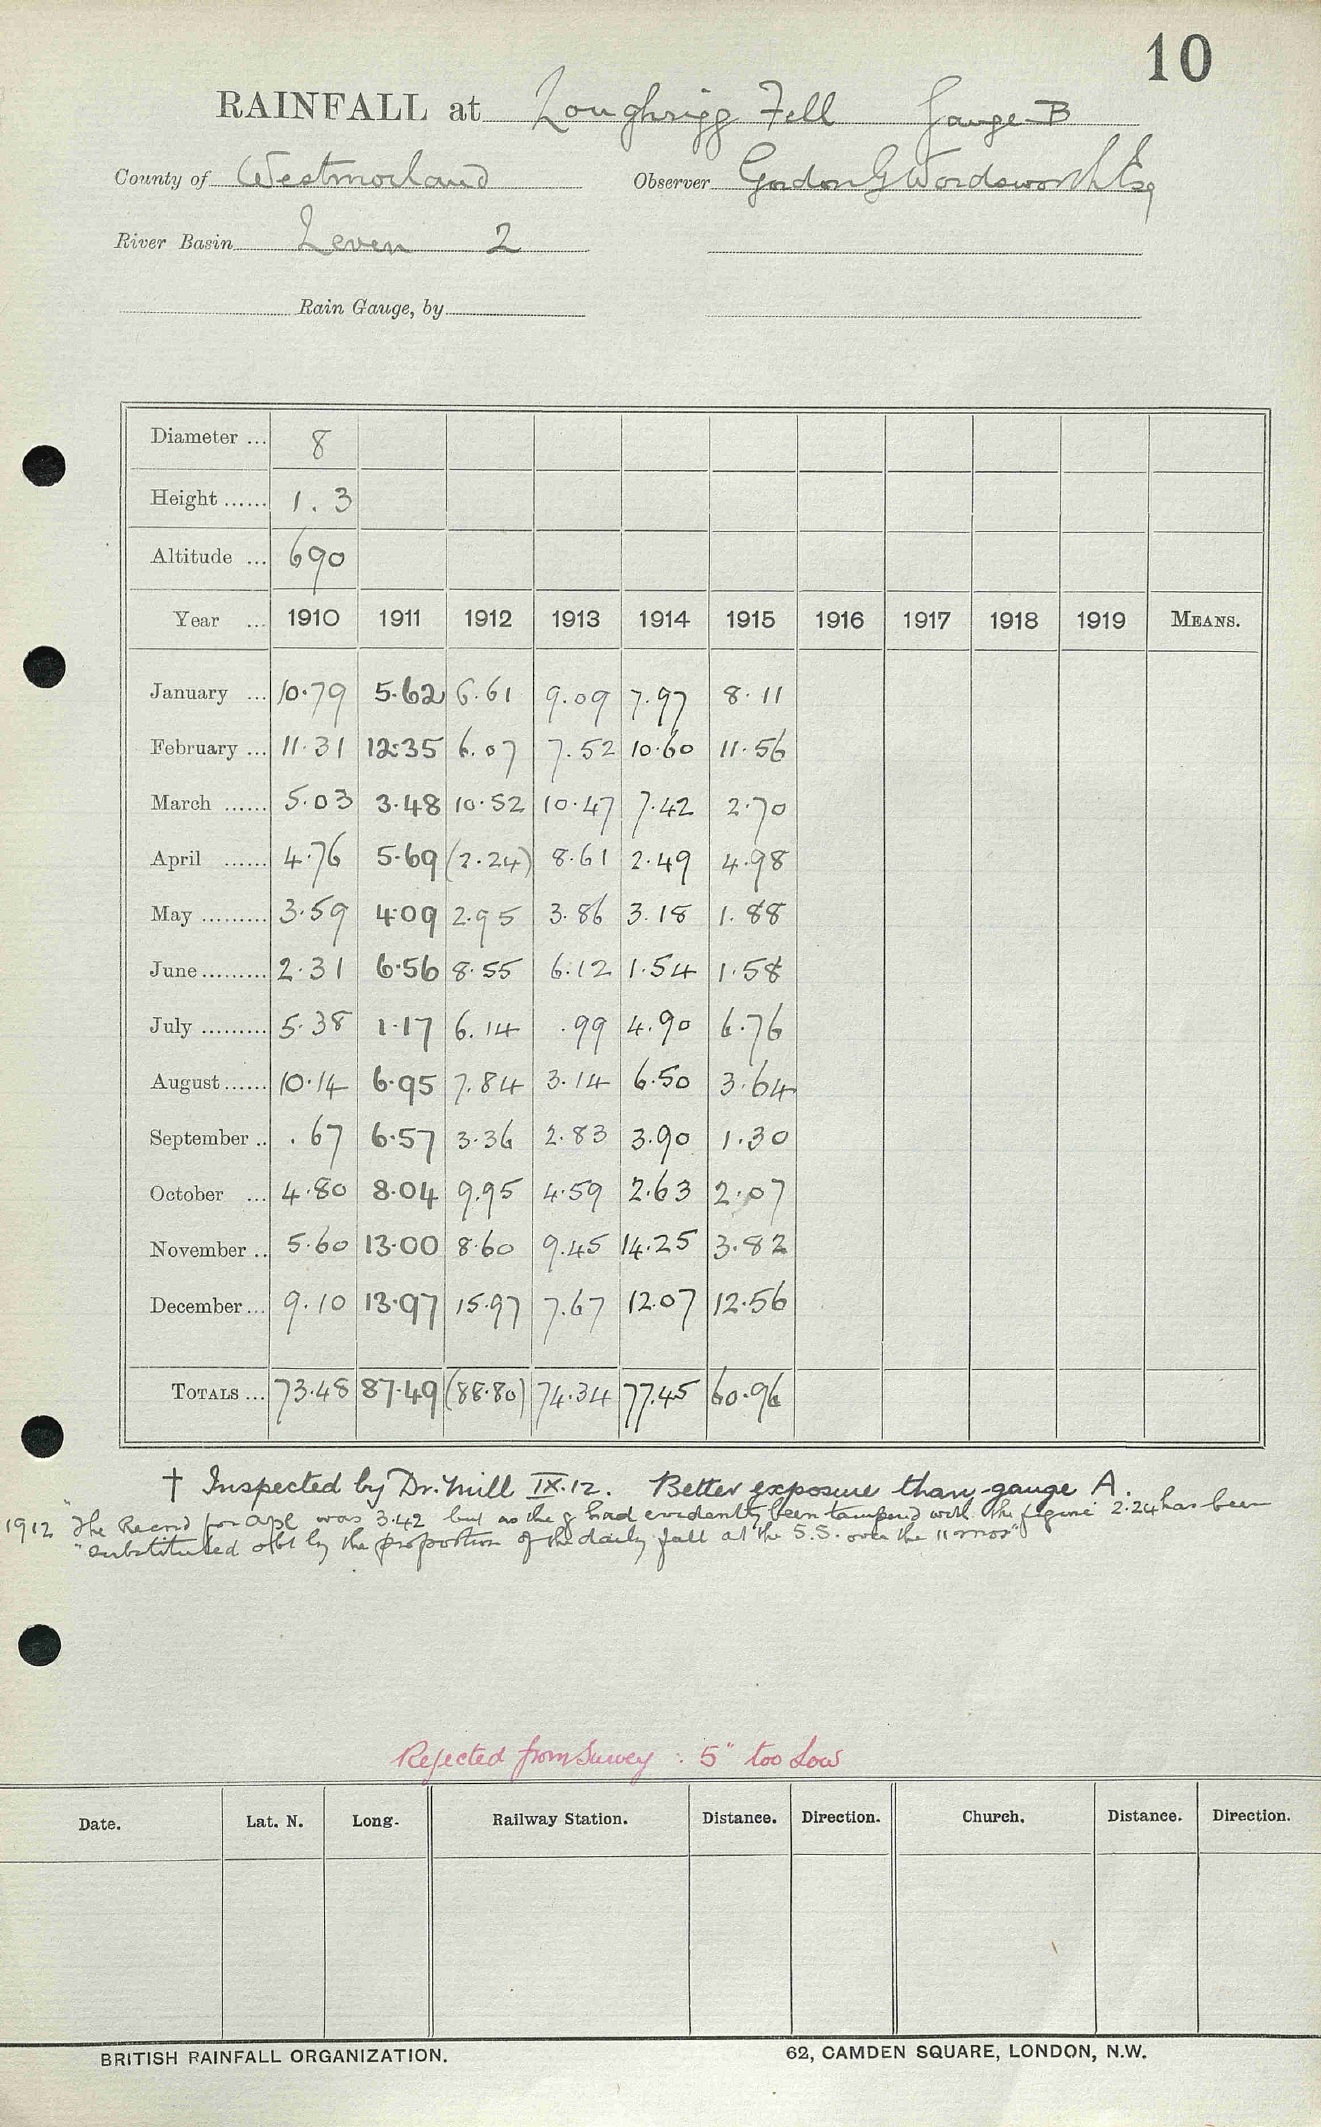 10
RAINFALL at Loughrigg Fell Gauge B
County of Westmorland Observer Gordon G Wordsworth Esq
River Basin Leven 2
Rain Gauge, by
Diameter ... 8
Height ...... 1.3
Altitude ... 690
Year ... 1910 1911 1912 1913 1914 1915 1916 1917 1918 1919 MEANS.
January ... 10.79 5.62 6.61 9.09 7.97 8.11
February ... 11.31 12.35 6.07 7.52 10.60 11.56
March ...... 5.03 3.48 10.52 10.47 7.42 2.70
April ...... 4.76 5.69 (2.24) 8.61 2.49 4.98
May ......... 3.59 4.09 2.95 3.86 3.18 1.88
June ......... 2.31 6.56 8.55 6.12 1.54 1.58
July ......... 5.38 1.17 6.14 .99 4.90 6.76
August ...... 10.14 6.95 7.84 3.14 6.50 3.64
September .. .67 6.57 3.36 2.83 3.90 1.30
October ... 4.80 8.04 9.95 4.59 2.63 2.07
November .. 5.60 13.00 8.60 9.45 14.25 3.82
December ... 9.10 13.97 15.97 7.67 12.07 12.56
TOTALS ... 73.48 87.49 (88.80) 74.34 77.45 60.96
† Inspected by Dr. Mill IX.12. Better exposure than gauge A.
1912 "The Record for Apl was 3.42 but as the g had evidently been tampered with the figure 2.24 has been
"substituted obt by the proportion of the daily fall at the S.S. over the 11 mos"
Rejected from Survey : 5" too low
Date. Lat. N. Long. Railway Station. Distance. Direction. Church. Distance. Direction.
BRITISH RAINFALL ORGANIZATION. 62, CAMDEN SQUARE, LONDON, N.W.